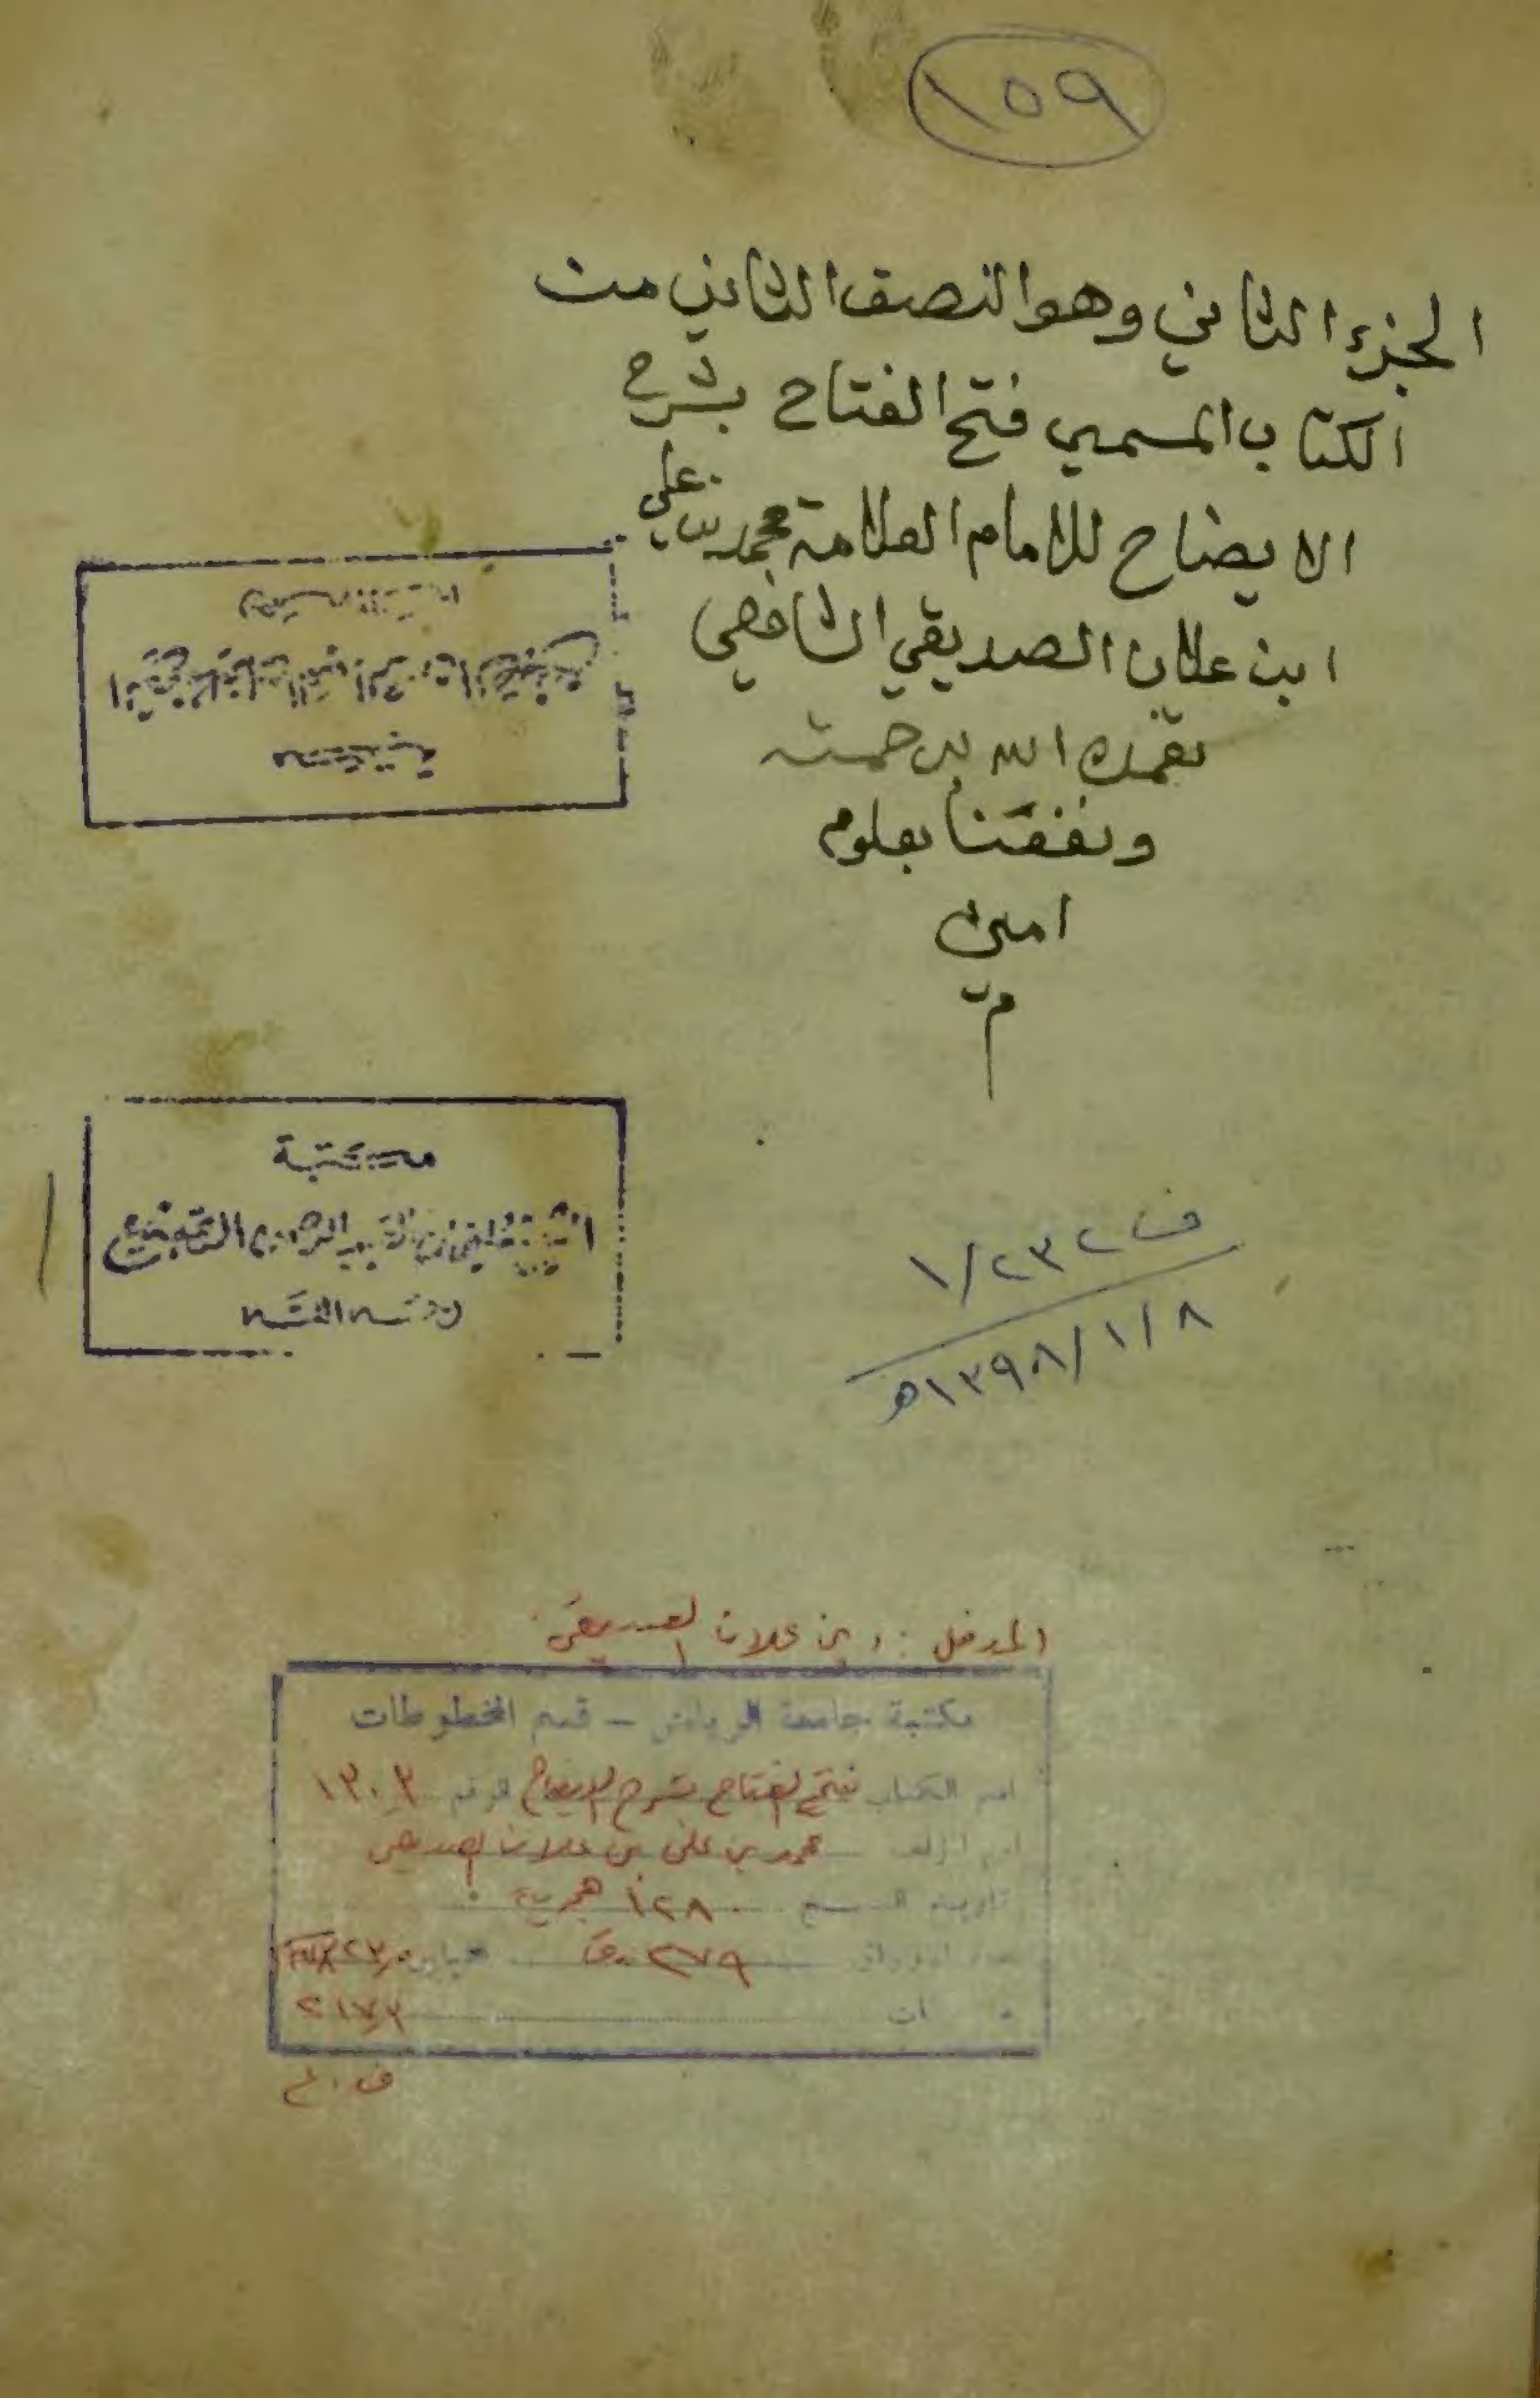 ١٥٩
الجزء الثاني وهو النصف الثاني من
الكتاب المسمي فتح الفتاح بشرح
الايضاح للامام العلامة محمد بن علي
ابن علان الصديقي الشافعي
تغمده الله برحمته
ونفعنا بعلومه
امين
م
مكتبة
ف ١/٢٣٢
١٣٩٨/١/٨ه
المدخل : ابن علان الصديقي
مكتبة جامعة الرياض - قسم المخطوطات
اسم الكتاب فتح الفتاح بشرح الايضاح الرقم ١٣٠٣
اسم المؤلف محمد بن علي بن علان الصديقي
تاريخ النسخ ١٢٨٠ هجرية
عدد الاوراق ٢٧٩ ق
٢١٧٫٣